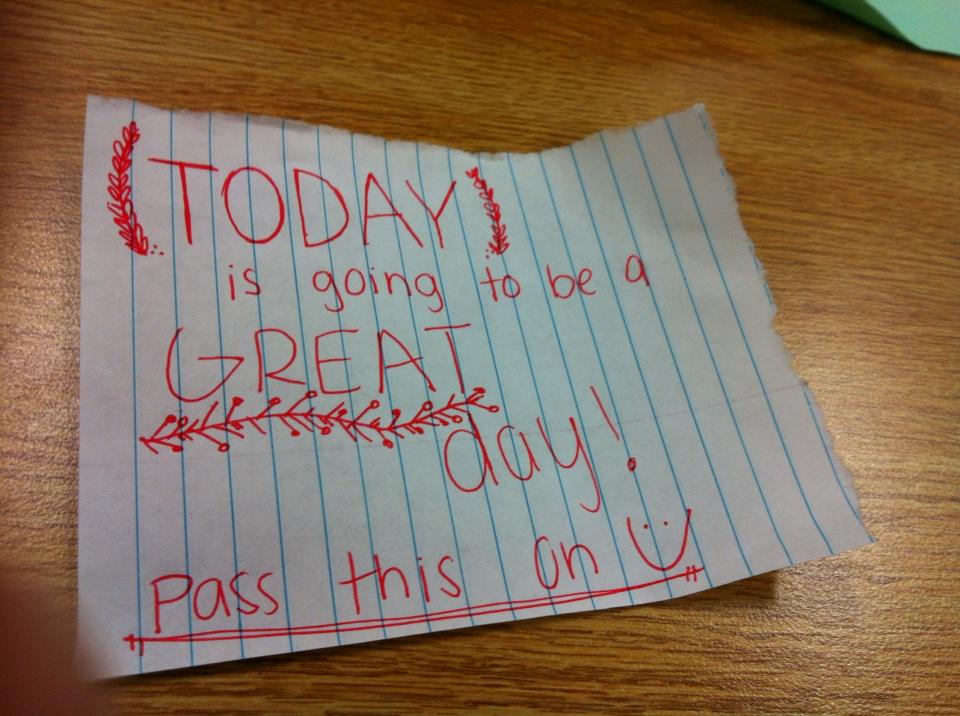 (TODAY)
is going to be a
GREAT
day!
Pass this on :)